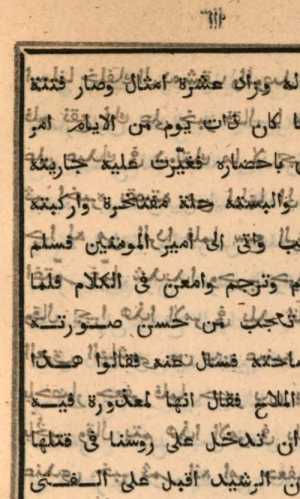 له وزاد عشرة امثال وصار فتنة
ا كان ذات يوم من الايام امر
باحضاره فغيّرت عليه جاريته
والبسته حلة مفتخرة واركبته
واتى الى امير المومنين فسلم
م وترجم وامعن فى الكلام فلما
تعجب من حسن صورتـه
احته فسال عنه فقالوا هـذا
الملاح فقال انها لمعذورة فيـه
ان ندخل على روسنا فى قتلها
ن الرشيد اقبل على الفـتى